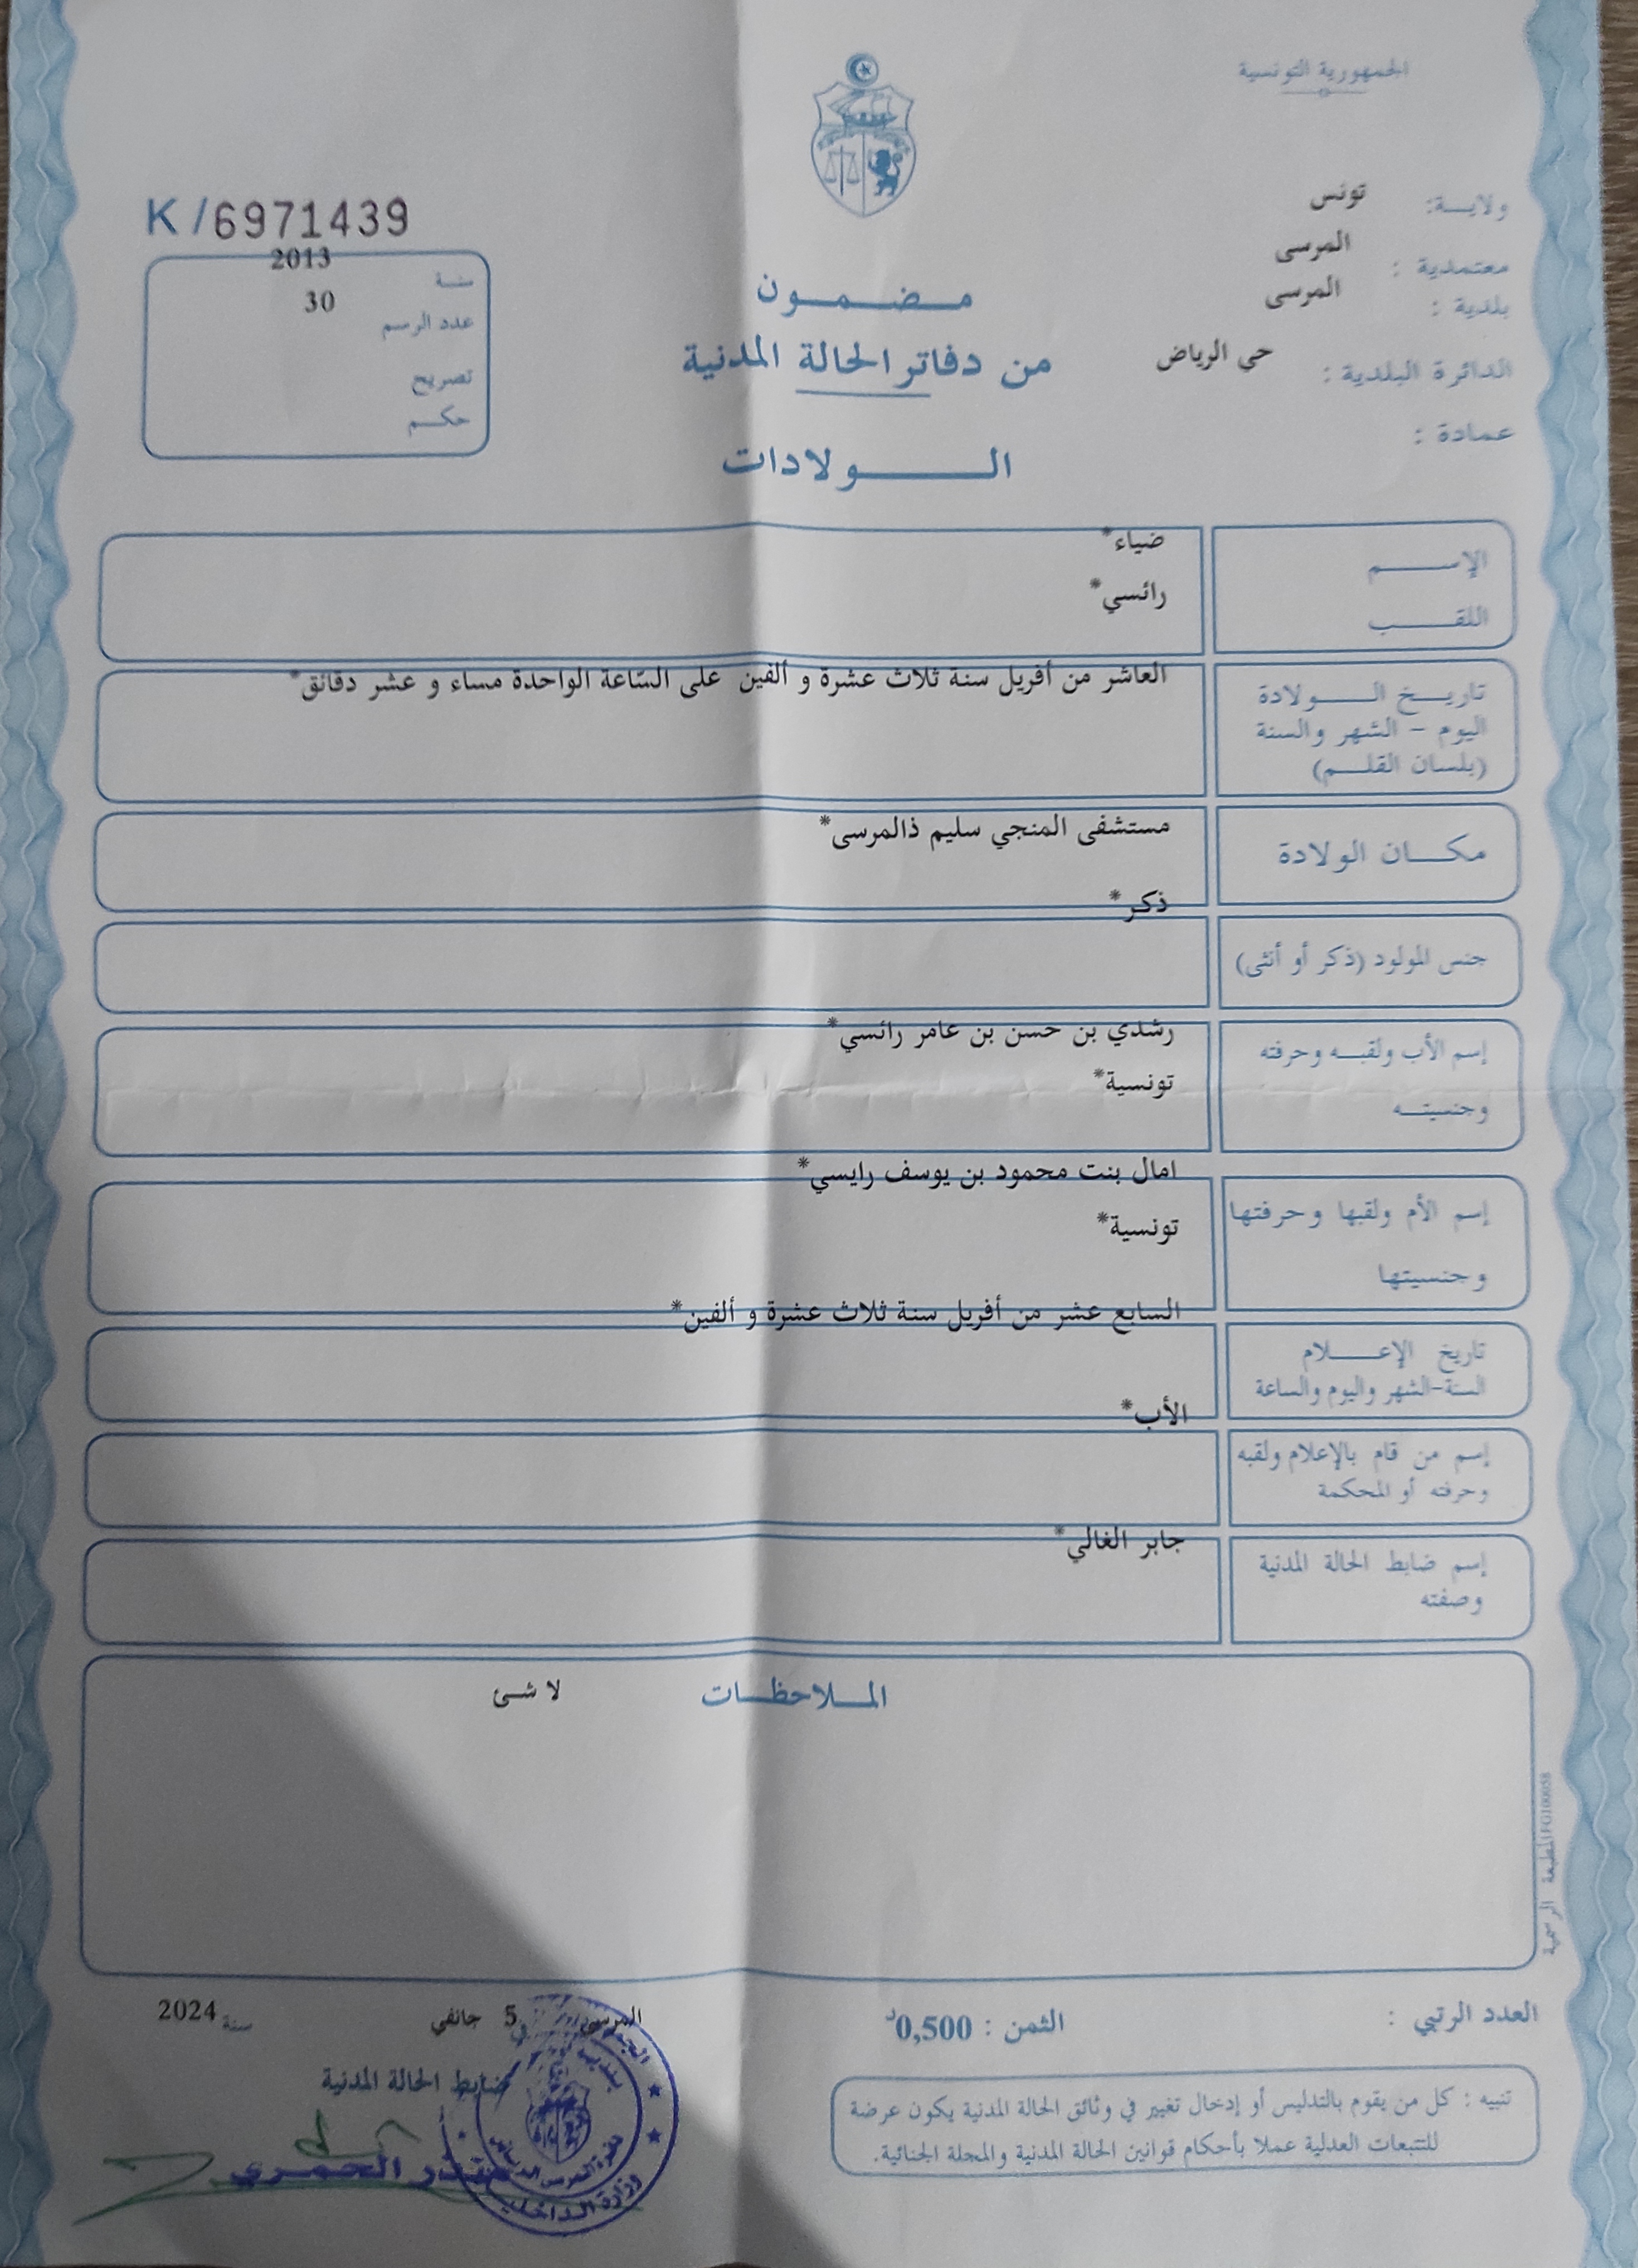 الجمهورية التونسية
ولايــة: تونس
معتمدية : المرسى
بلدية : المرسى
الدائرة البلدية : حي الرياض
عمادة :
مـضـمـون
من دفاتر الحالة المدنية
الـولادات
K/6971439
سنـة 2013
عدد الرسم 30
تصريح
حكـم
الإســم ضياء*
اللقـب رائسي*
تاريـخ الـولادة العاشر من أفريل سنة ثلاث عشرة و ألفين على السّاعة الواحدة مساء و عشر دقائق*
اليوم - الشهر والسنة
(بلسان القلـم)
مكـان الولادة مستشفى المنجي سليم ذالمرسى*
ذكر*
جنس المولود (ذكر أو أنثى)
إسم الأب ولقبـه وحرفته رشدي بن حسن بن عامر رائسي*
وجنسيتـه تونسية*
امال بنت محمود بن يوسف رايسي*
إسم الأم ولقبها وحرفتها
وجنسيتها تونسية*
السابع عشر من أفريل سنة ثلاث عشرة و ألفين*
تاريخ الإعـلام
السنة-الشهر واليوم والساعة
الأب*
إسم من قام بالإعلام ولقبه
وحرفته أو المحكمة
جابر الغالي*
إسم ضابط الحالة المدنية
وصفته
المـلاحظـات لا شئ
المطبعة الرسمية IFG100058
العدد الرتبي :
الثمن : 0,500د
المرسى في 5 جانفي سنة 2024
ضابط الحالة المدنية
تنبيه : كل من يقوم بالتدليس أو إدخال تغيير في وثائق الحالة المدنية يكون عرضة
للتتبعات العدلية عملا بأحكام قوانين الحالة المدنية والمجلة الجنائية.
الحمري
وزارة الداخلية